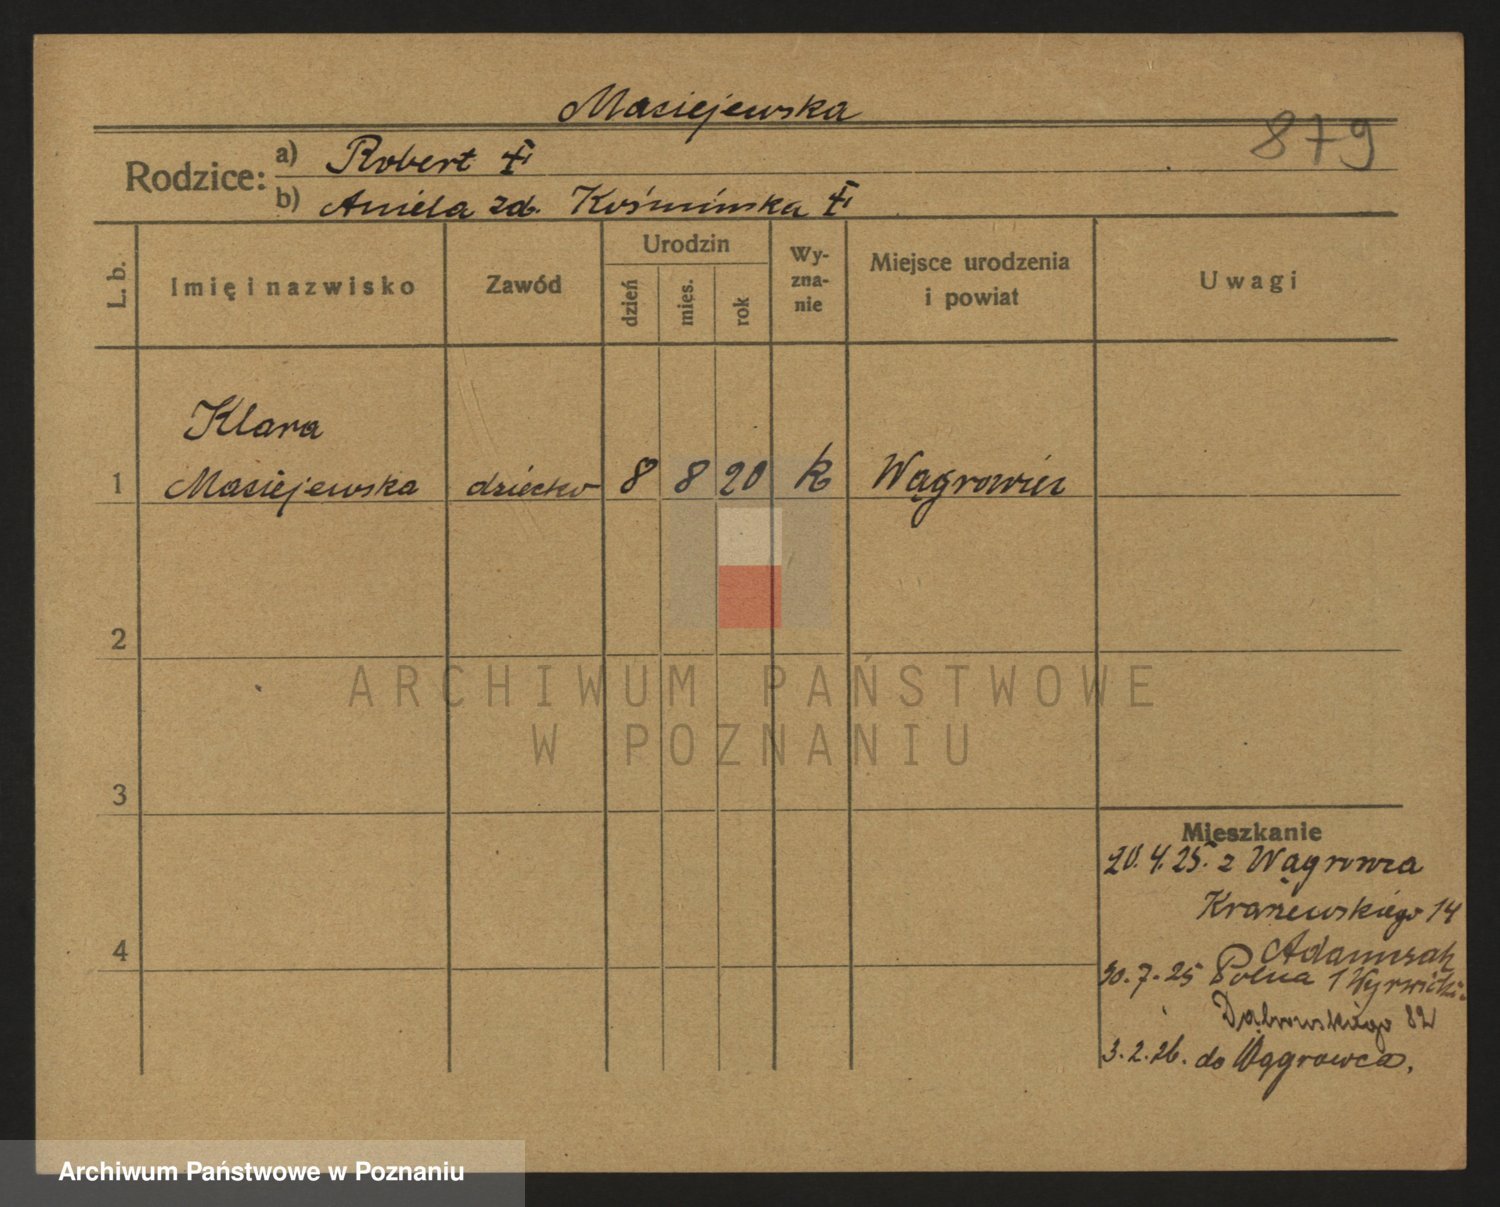 Maciejewska
879
Rodzice: a) Robert
b) Aniela zd. Kośmińska
L. b.
Imię i nazwisko
Zawód
Urodzin
dzień
mies.
rok
Wy-
zna-
nie
Miejsce urodzenia
i powiat
Uwagi
Klara
1 Maciejewska dziecko 8 8 20 k Wągrowiec
2
ARCHIWUM PAŃSTWOWE
W POZNANIU
3
Mieszkanie
20.4.25. z Wągrowca
Kraszewskiego 14
4
Adamczak
30.7.25 Polna 1 Wyrwicki
Dąbrowskiego 82
3.2.26. do Wągrowca.
Archiwum Państwowe w Poznaniu